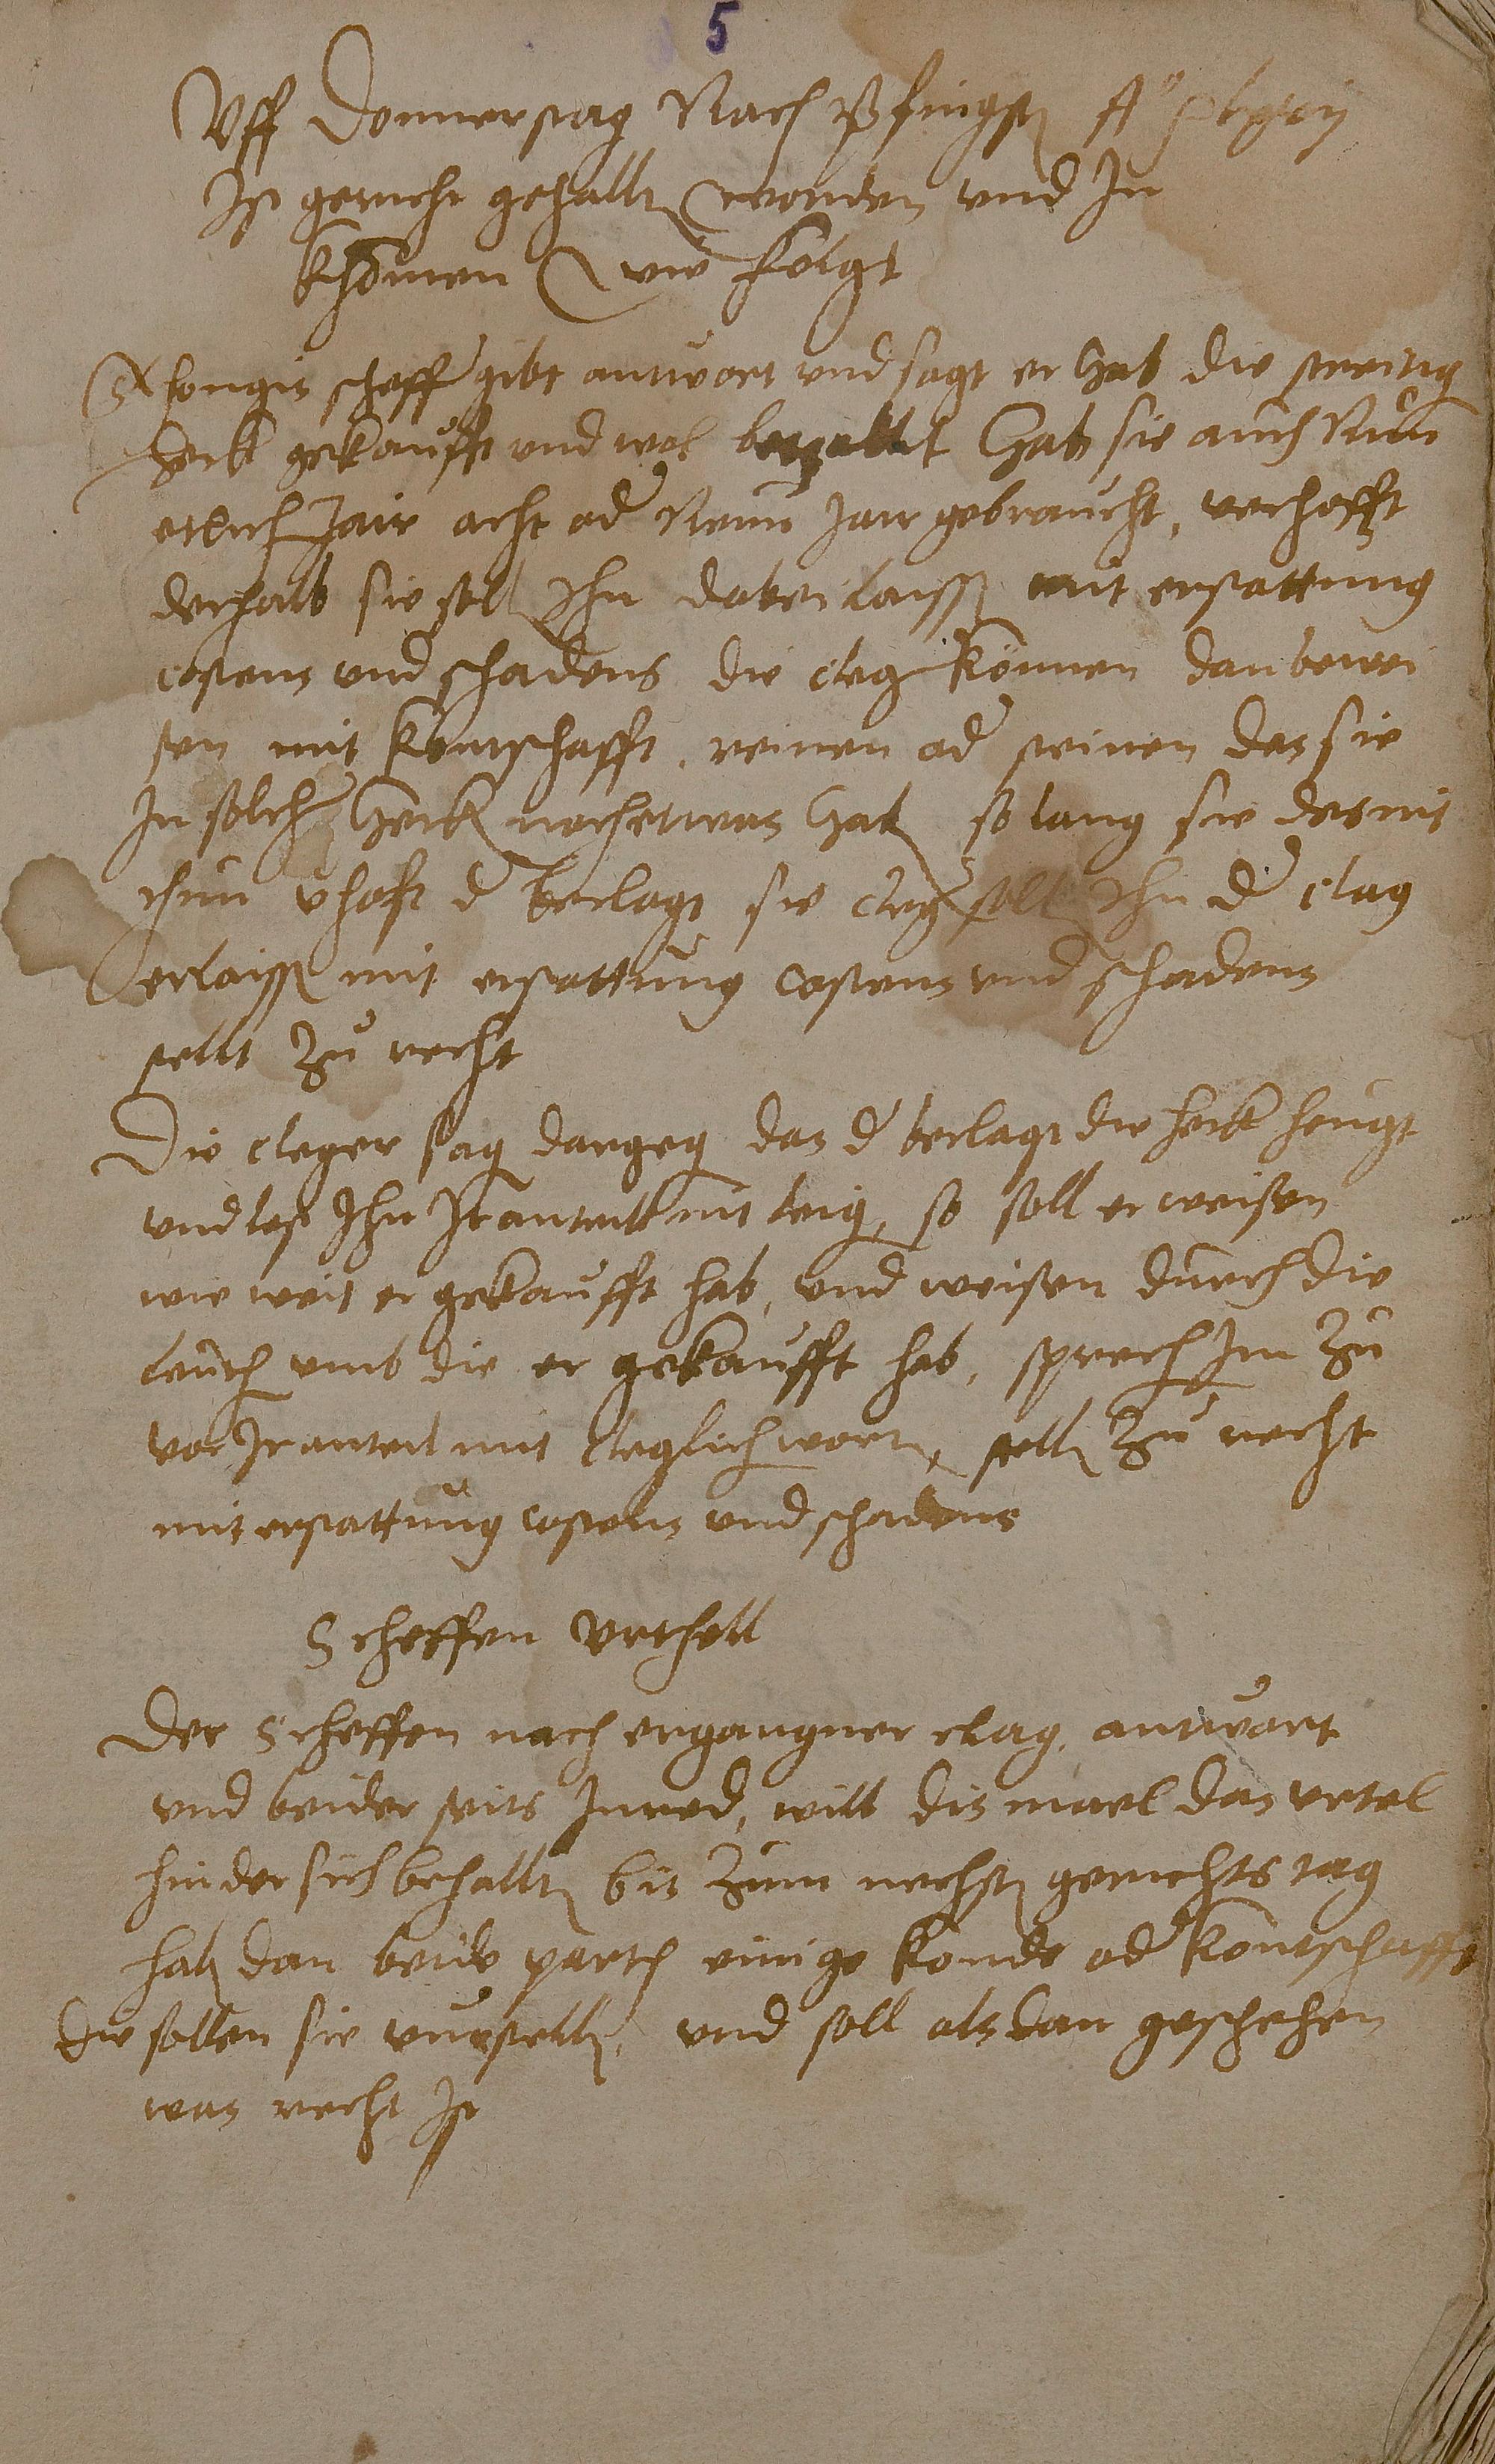 5
Uff Donnerstag Nach Pfingst A°
Ist gericht gehallten worden und In
khomen wie folgt
scheff gibt antwort und sagt er hab die streitig
heck gekaufft und wol bezallt hab sie auch Nun
etlich Jair acht od Neun Jair gebraucht, verhofft
derhalb sie soll Ihn dabei laiss mit erstattung
costens und schadens die cleg können dan bewei
sen mit kontschafft, reinen od steinen das sie
In solch heck noch etwas hab so lang sie das nit
thun vhoft d beclagt sie cleg soll Ihn d clag
erlaiss mit erstattung costens und schadens
stellt zu recht
Die cleger sag dargeg das d beclagt die heck
und los Ihn Ir anteill nit so soll er weisen
wie weit er gekaufft hab, und weisen durch die
umb die er gekaufft hab, sprech Im zu
vor Ir anteil mit cleglich worten, stelln zu recht
mit erstattung costens und schadens
Scheffen Urthell
Der Scheffen nach ergangner clag, antwort
und beider seits Inred, will dis mael das urtel
hinder sich behallten bis zum nechsten gerichts tag
hab dan beide parth einige konde od kontschafft
die sollen sie vurstelln, und soll alsdan geschehen
was recht Ist